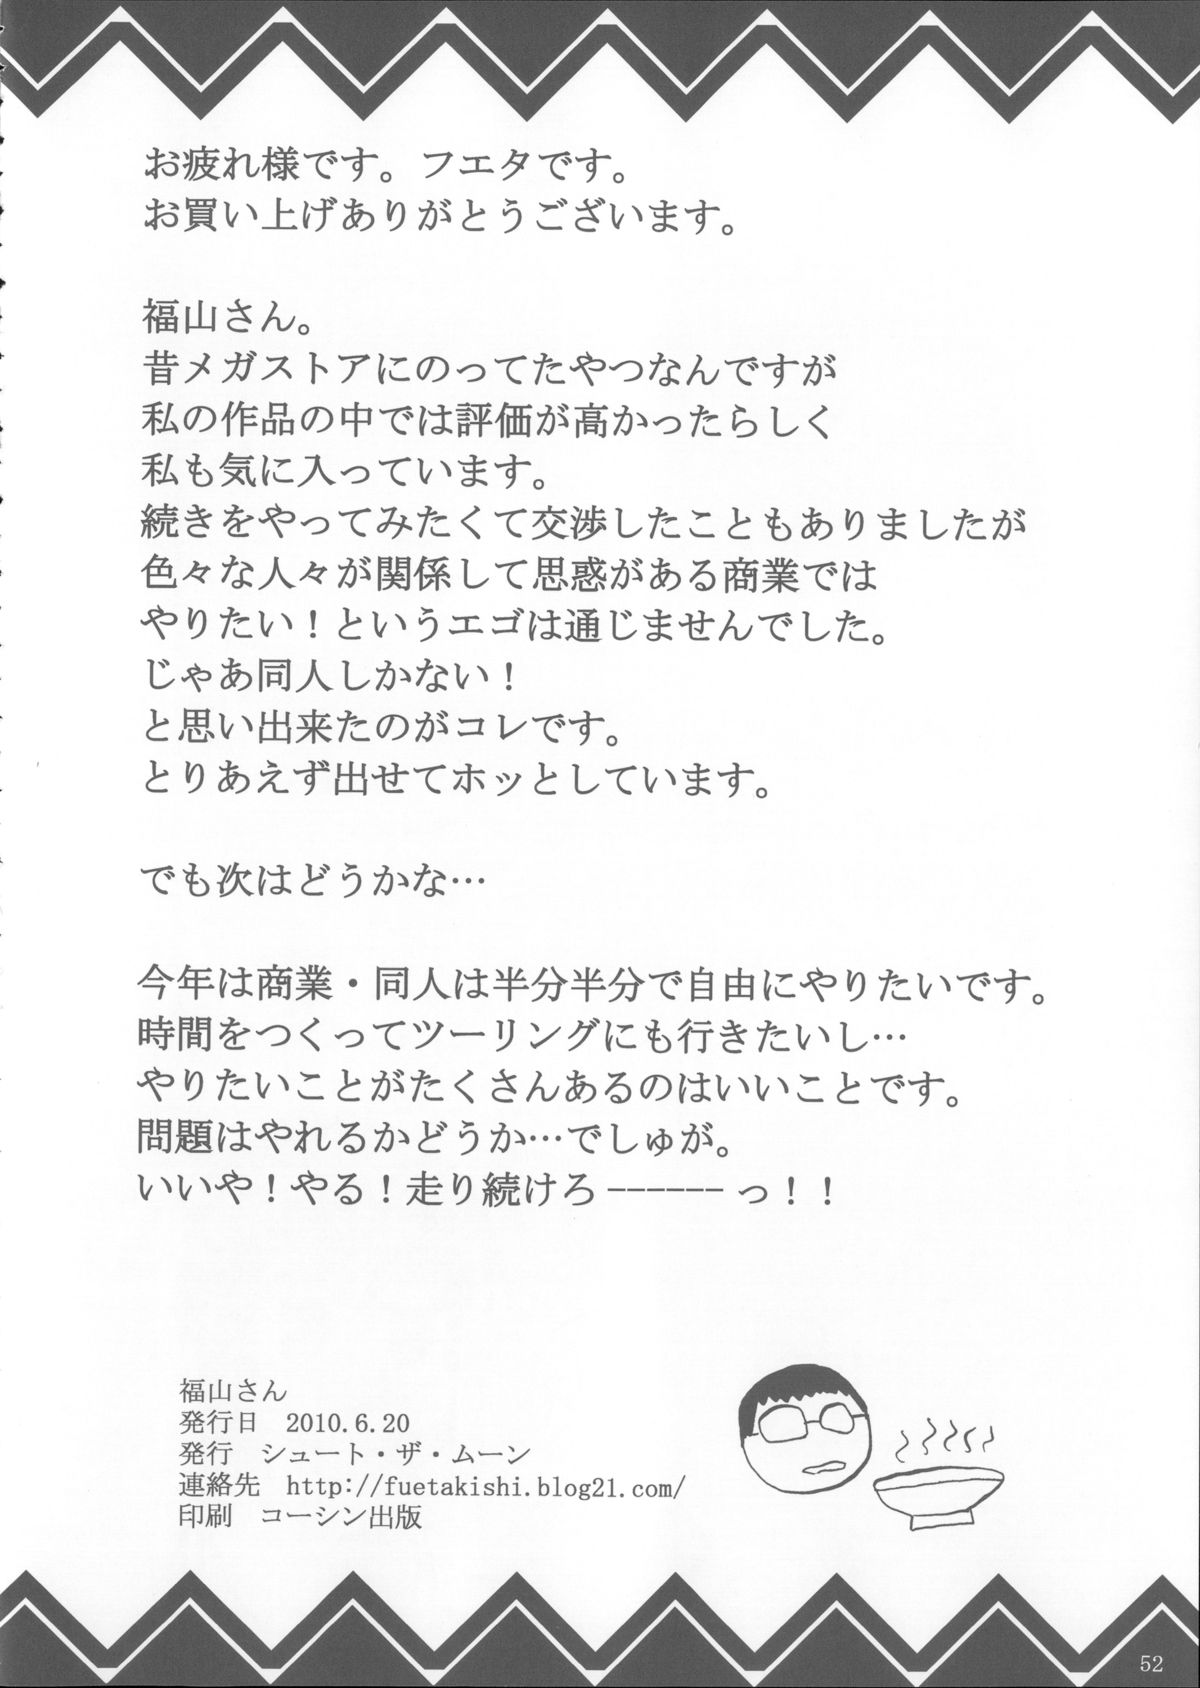 お疲れ様です。フエタです。
お買い上げありがとうございます。
福山さん。
昔メガストアにのってたやつなんですが
私の作品の中では評価が高かったらしく
私も気に入っています。
続きをやってみたくて交渉したこともありましたが
色々な人々が関係して思惑がある商業では
やりたい！というエゴは通じませんでした。
じゃあ同人しかない！
と思い出来たのがコレです。
とりあえず出せてホッとしています。
でも次はどうかな…
今年は商業・同人は半分半分で自由にやりたいです。
時間をつくってツーリングにも行きたいし…
やりたいことがたくさんあるのはいいことです。
問題はやれるかどうか…でしゅが。
いいや！やる！走り続けろ ------ っ！！
福山さん
発行日　2010.6.20
発行　シュート・ザ・ムーン
連絡先　http://fuetakishi.blog21.com/
印刷　コーシン出版
52